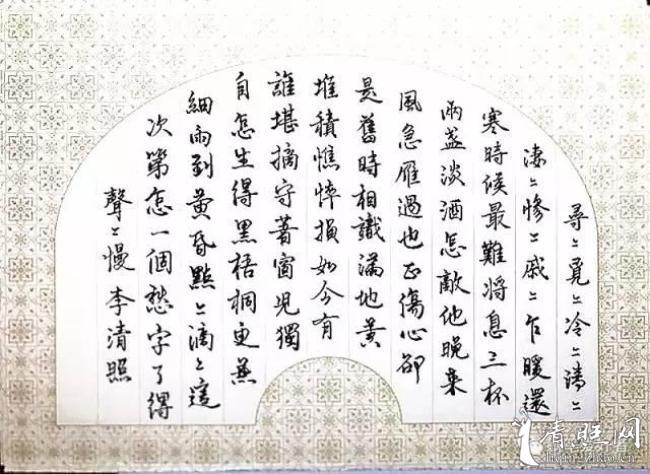 尋〻覓〻冷〻清〻
淒〻慘〻戚〻乍暖還
寒時候最難將息三杯
兩盞淡酒怎敵他晚來
風急雁過也正傷心卻
是舊時相識滿地黃
堆積憔悴損如今有
誰堪摘守著窗兒獨
自怎生得黑梧桐更兼
細雨到黃昏點〻滴〻這
次第怎一個愁字了得
聲〻慢李清照
青旺网